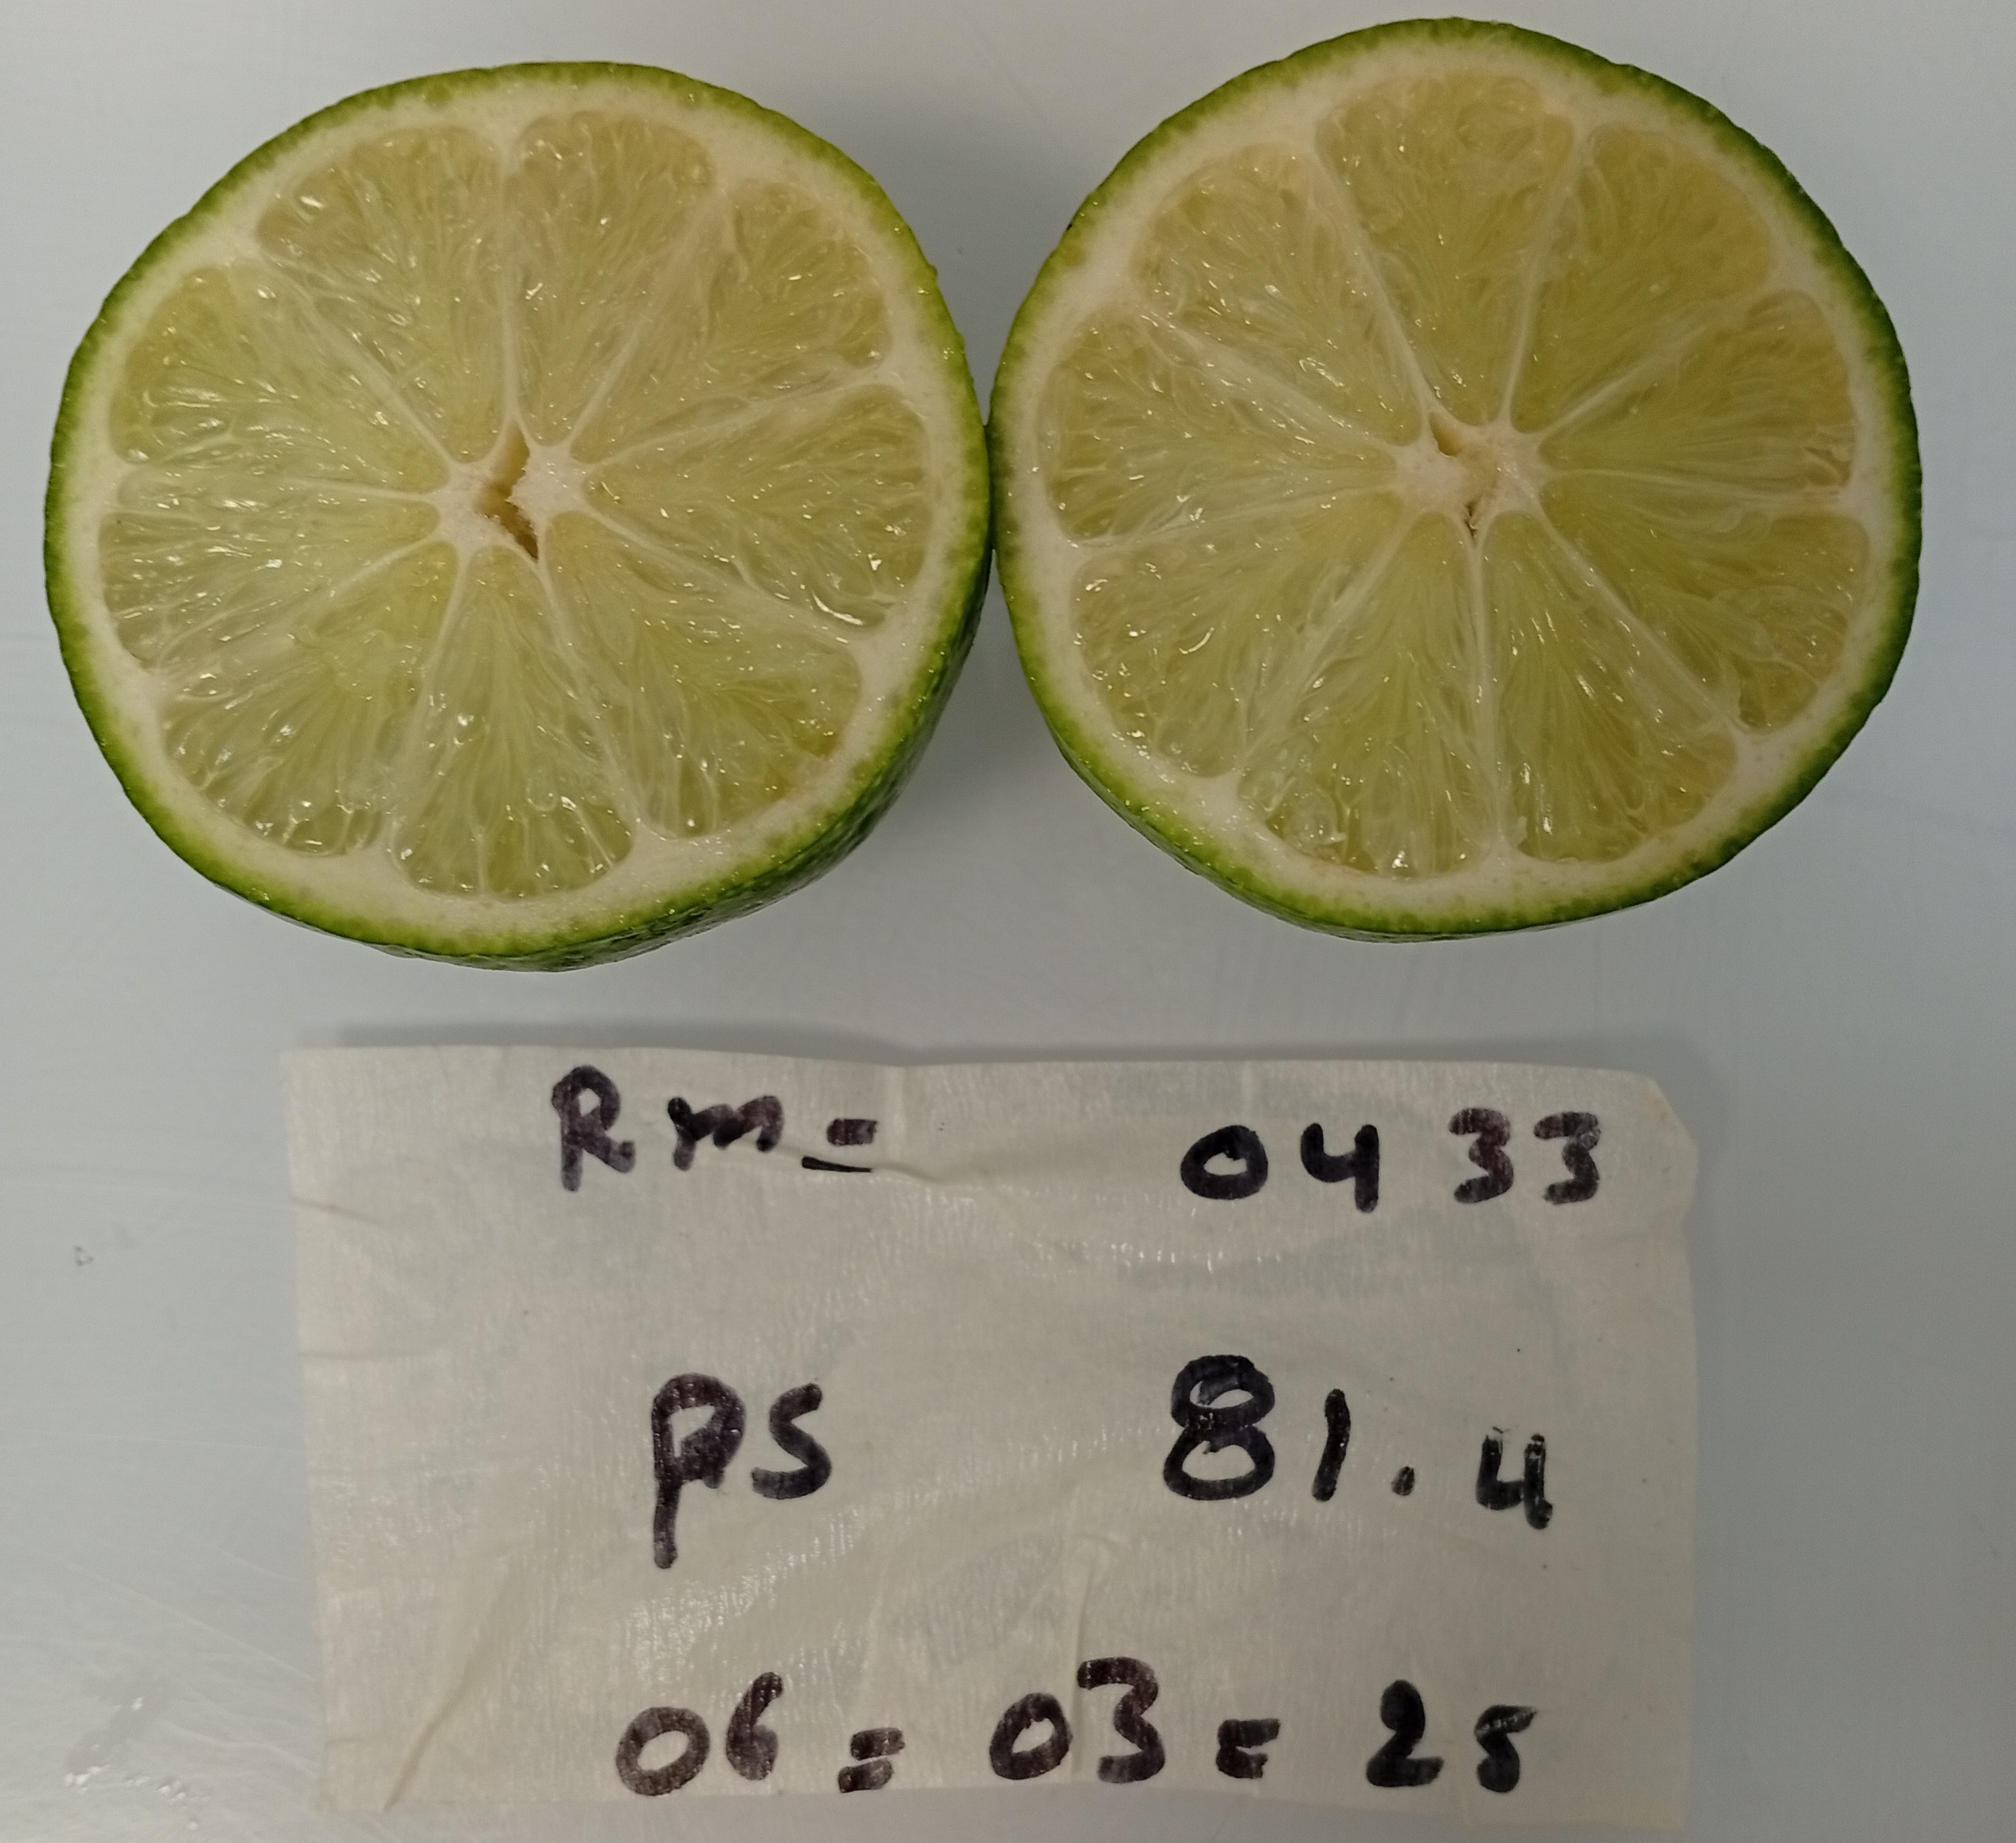 Rm= 0433
ps 81.4
06=03=25